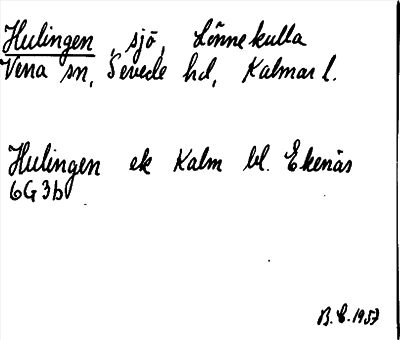 Hulingen, sjö, Lönnekulla
Vena sn, Sevede hd, Kalmar l.
Hulingen ek Kalm bl. Ekenäs
6G3b
B.E. 1957